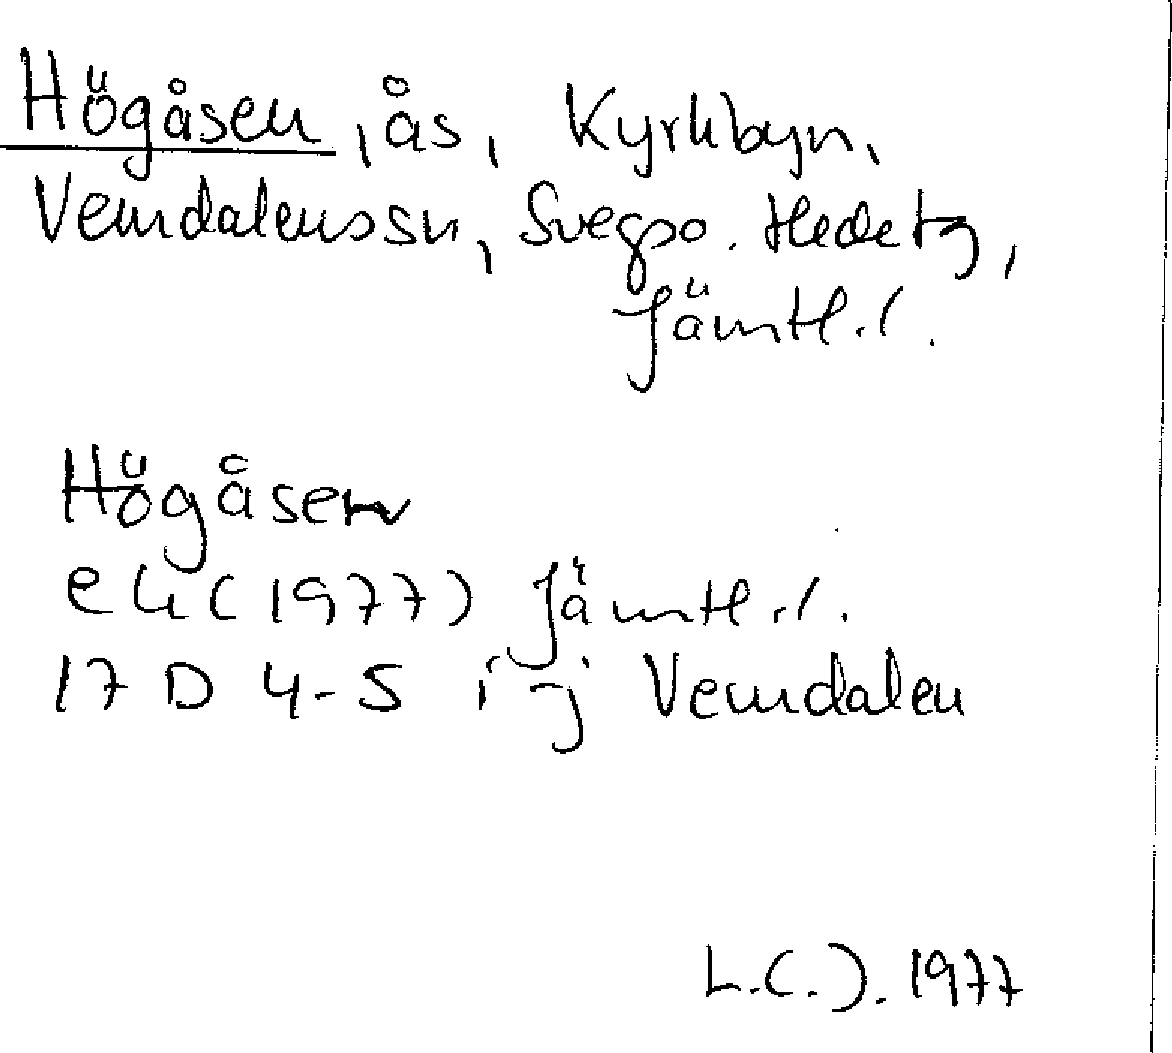 Högåsen, ås, Kyrkbyn,
Vemdalenssn, Svegso. Hedetg,
Jämtl.l.
Högåsen
ek (1977) Jämtl.l.
17 D 4-5 i-j Vemdalen
L.C.J. 1977